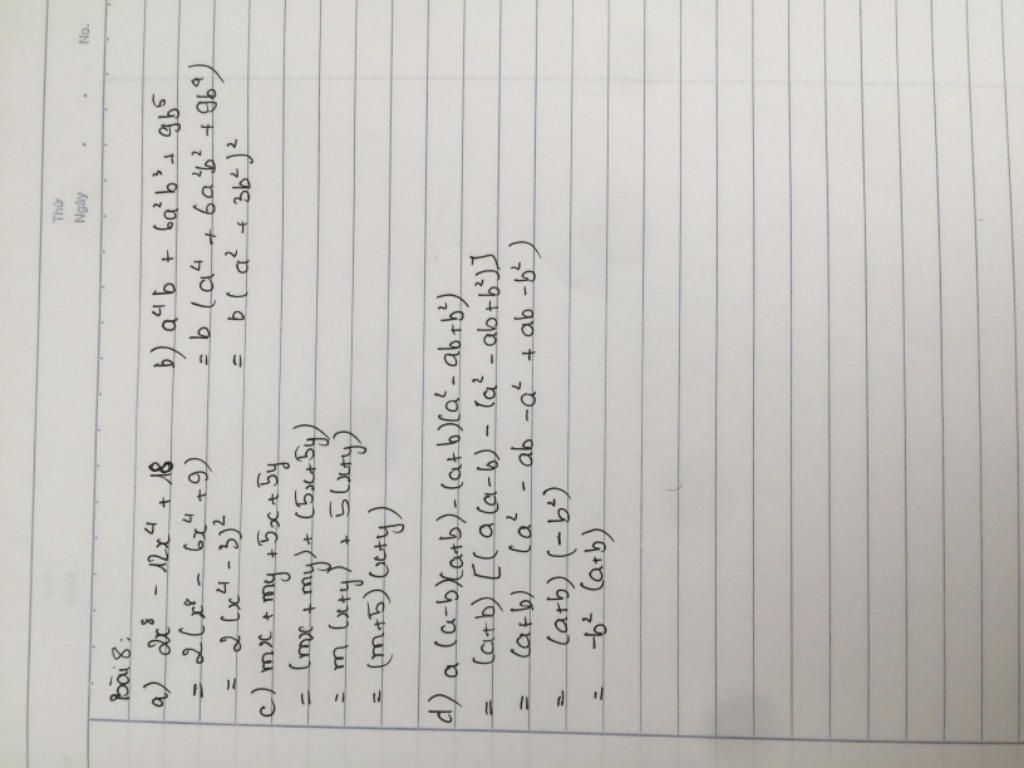 Thứ
Ngày . . No.
Bài 8:
a) 2x⁸ - 12x⁴ + 18
= 2(x⁸ - 6x⁴ + 9)
= 2(x⁴ - 3)²
b) a⁴b + 6a²b³ + 9b⁵
= b(a⁴ + 6a²b² + 9b⁴)
= b(a² + 3b²)²
c) mx + my + 5x + 5y
= (mx + my) + (5x + 5y)
= m(x+y) + 5(x+y)
= (m+5)(x+y)
d) a(a-b)(a+b) - (a+b)(a² - ab + b²)
= (a+b)[(a(a-b) - (a² - ab + b²)]
= (a+b)(a² - ab - a² + ab - b²)
= (a+b)(-b²)
= -b²(a+b)